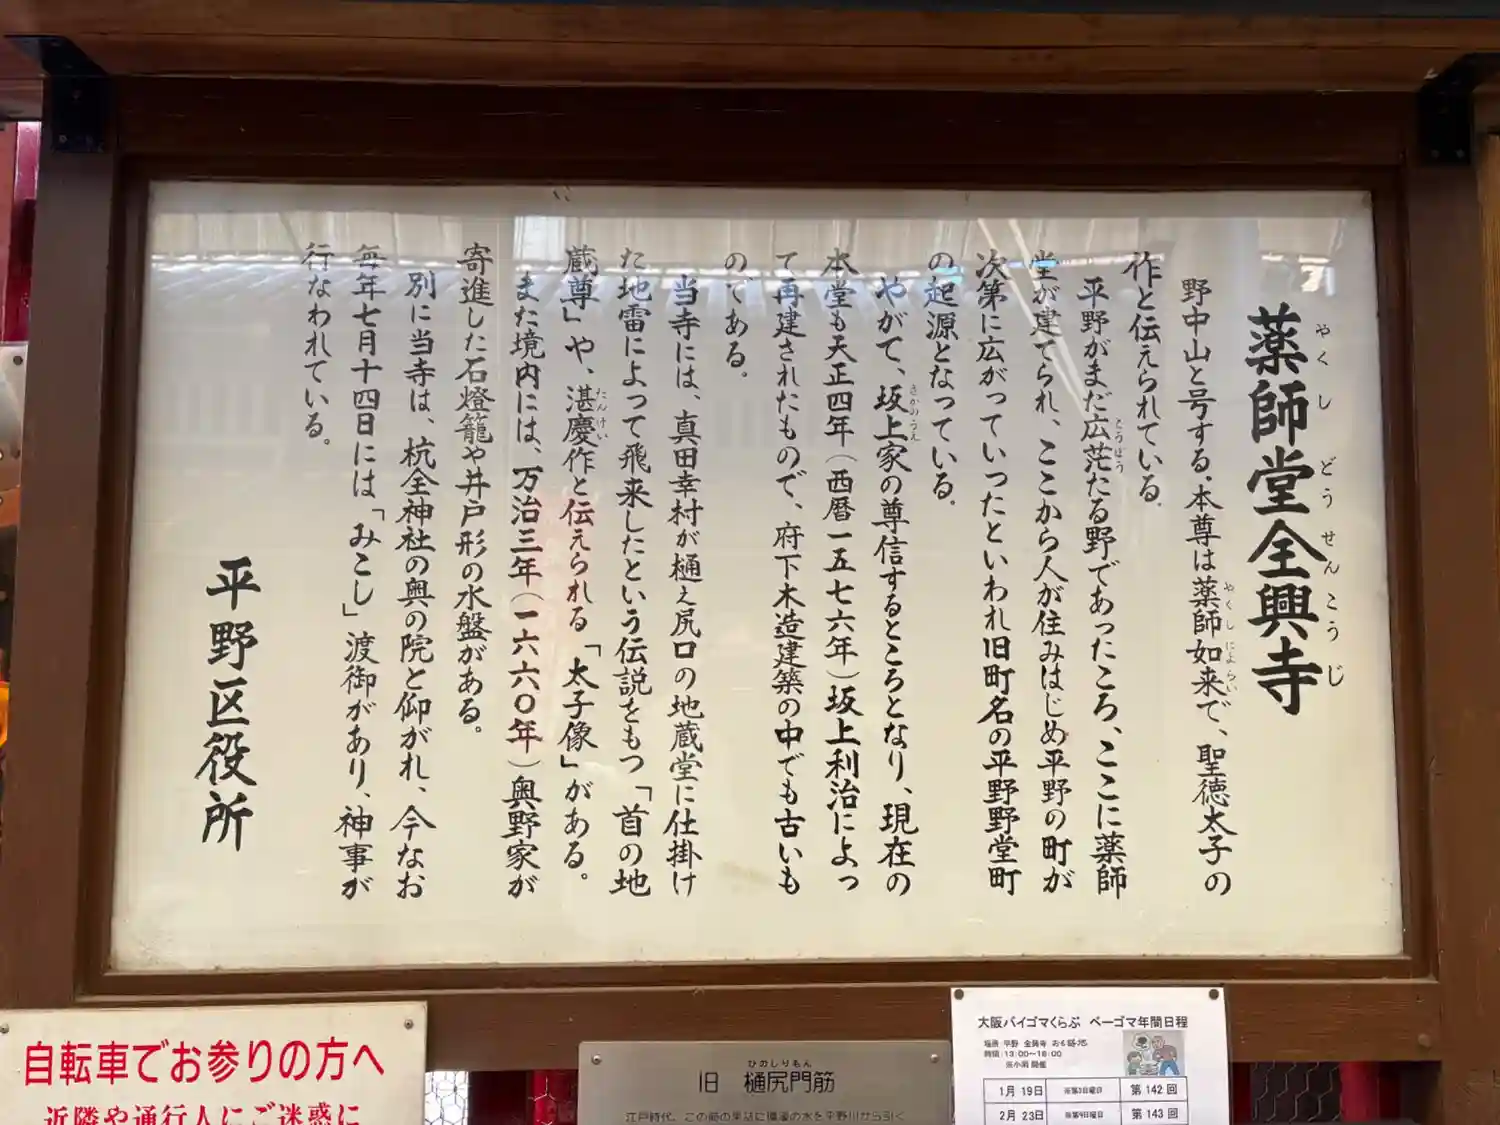 薬師堂全興寺
やくしどうせんこうじ
野中山と号する。本尊は薬師如来で、聖徳太子の
やくしによらい
作と伝えられている。
平野がまだ広茫たる野であったころ、ここに薬師
こうぼう
堂が建てられ、ここから人が住みはじめ平野の町が
次第に広がっていったといわれ旧町名の平野野堂町
の起源となっている。
やがて、坂上家の尊信するところとなり、現在の
さかのうえ
本堂も天正四年(西暦一五七六年)坂上利治によっ
て再建されたもので、府下木造建築の中でも古いも
のである。
当寺には、真田幸村が樋之尻口の地蔵堂に仕掛け
た地雷によって飛来したという伝説をもつ「首の地
蔵尊」や、湛慶作と伝えられる「太子像」がある。
たんけい
また境内には、万治三年(一六六〇年)奥野家が
寄進した石燈籠や井戸形の水盤がある。
別に当寺は、杭全神社の奥の院と仰がれ、今なお
毎年七月十四日には「みこし」渡御があり、神事が
行なわれている。
平野区役所
自転車でお参りの方へ
近隣や通行人にご迷惑に
ひのしりもん
旧 樋尻門筋
大阪バイゴマくらぶ ベーゴマ年間日程
場所:平野 全興寺 おも路地
時間:13:00~16:00
※小雨開催
1月19日 ※第3日曜日 第142回
2月23日 第143回